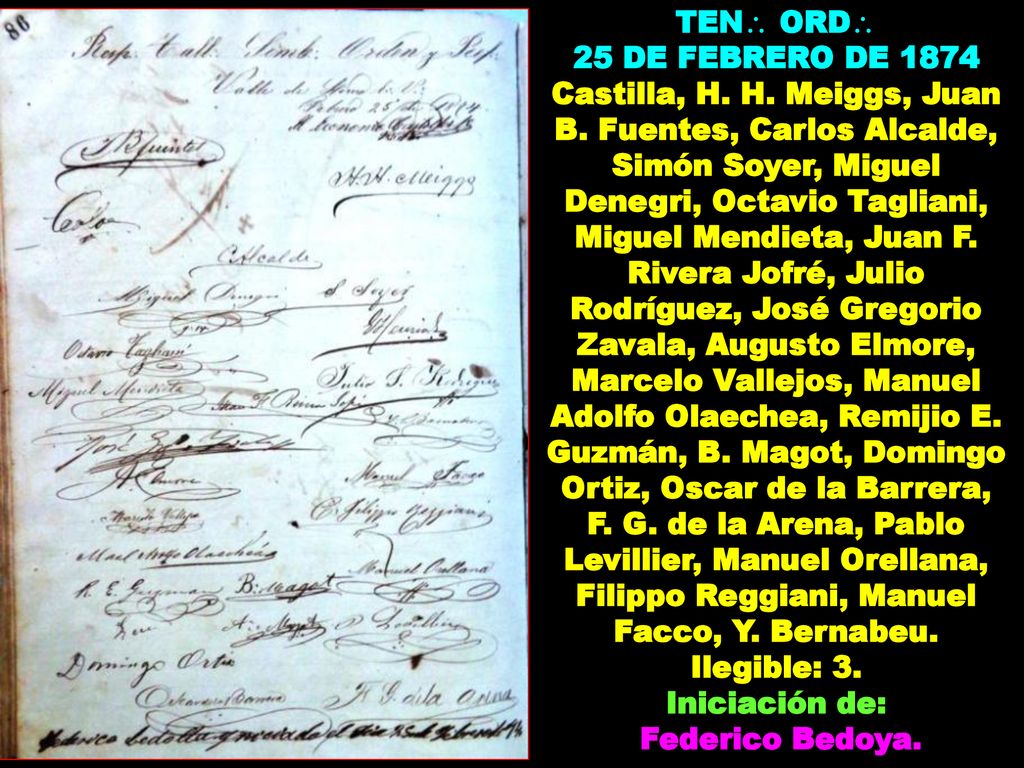 86
Resp. Tall. Simb. Orden y
Valle de Lima
Febrero 25 de 1874
JB Fuentes
H. H. Meiggs
C Alcalde
Miguel Denegri
S. Soyer
Octavio Tagliani
Miguel Mendieta
Julio S. Rodriguez
José
Manuel Facco
Marcelo Vallejos
E. Filippo Reggiani
Manl Adolfo Olaechea
Manuel Orellana
R. E. Guzman
B. Magot
P Levillier
Domingo Ortiz
Oscar de la Barrera
F G de la Arena
Federico Bedolla y iniciado el dia 25 de Febrero
TEN∴ ORD∴
25 DE FEBRERO DE 1874
Castilla, H. H. Meiggs, Juan
B. Fuentes, Carlos Alcalde,
Simón Soyer, Miguel
Denegri, Octavio Tagliani,
Miguel Mendieta, Juan F.
Rivera Jofré, Julio
Rodríguez, José Gregorio
Zavala, Augusto Elmore,
Marcelo Vallejos, Manuel
Adolfo Olaechea, Remijio E.
Guzmán, B. Magot, Domingo
Ortiz, Oscar de la Barrera,
F. G. de la Arena, Pablo
Levillier, Manuel Orellana,
Filippo Reggiani, Manuel
Facco, Y. Bernabeu.
Ilegible: 3.
Iniciación de:
Federico Bedoya.